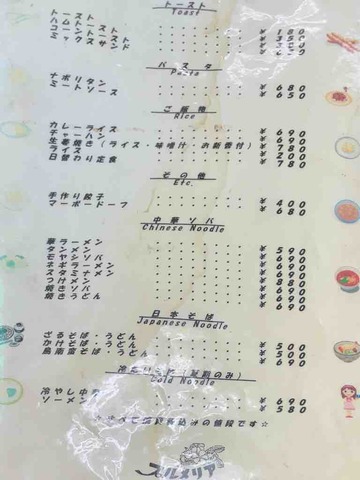 トースト
Toast
トースト ¥180
ハムトースト
コーントースト
ミックスサンド
パスタ
Pasta
ナポリタン ¥680
ミートソース ¥650
ご飯物
Rice
カレーライス ¥690
チャーハン ¥690
生姜焼き(ライス・味噌汁・お新香付) ¥780
ライス ¥200
日替わり定食 ¥780
その他
Etc.
手作り餃子 ¥400
マーボードーフ ¥680
中華ソバ
Chinese Noodle
華ラーメン ¥590
タンメン ¥690
モヤシソバ ¥690
ネギラーメン ¥690
スタミナメン ¥890
つけメン ¥680
焼きソバ ¥690
焼きうどん ¥690
日本そば
Japanese Noodle
ざるそば・うどん ¥500
かけそば・うどん ¥500
鳥南蛮そば・うどん ¥550
(夏期のみ)
Cold Noodle
冷やし中華 ¥690
ソーメン ¥580
の値段です☆